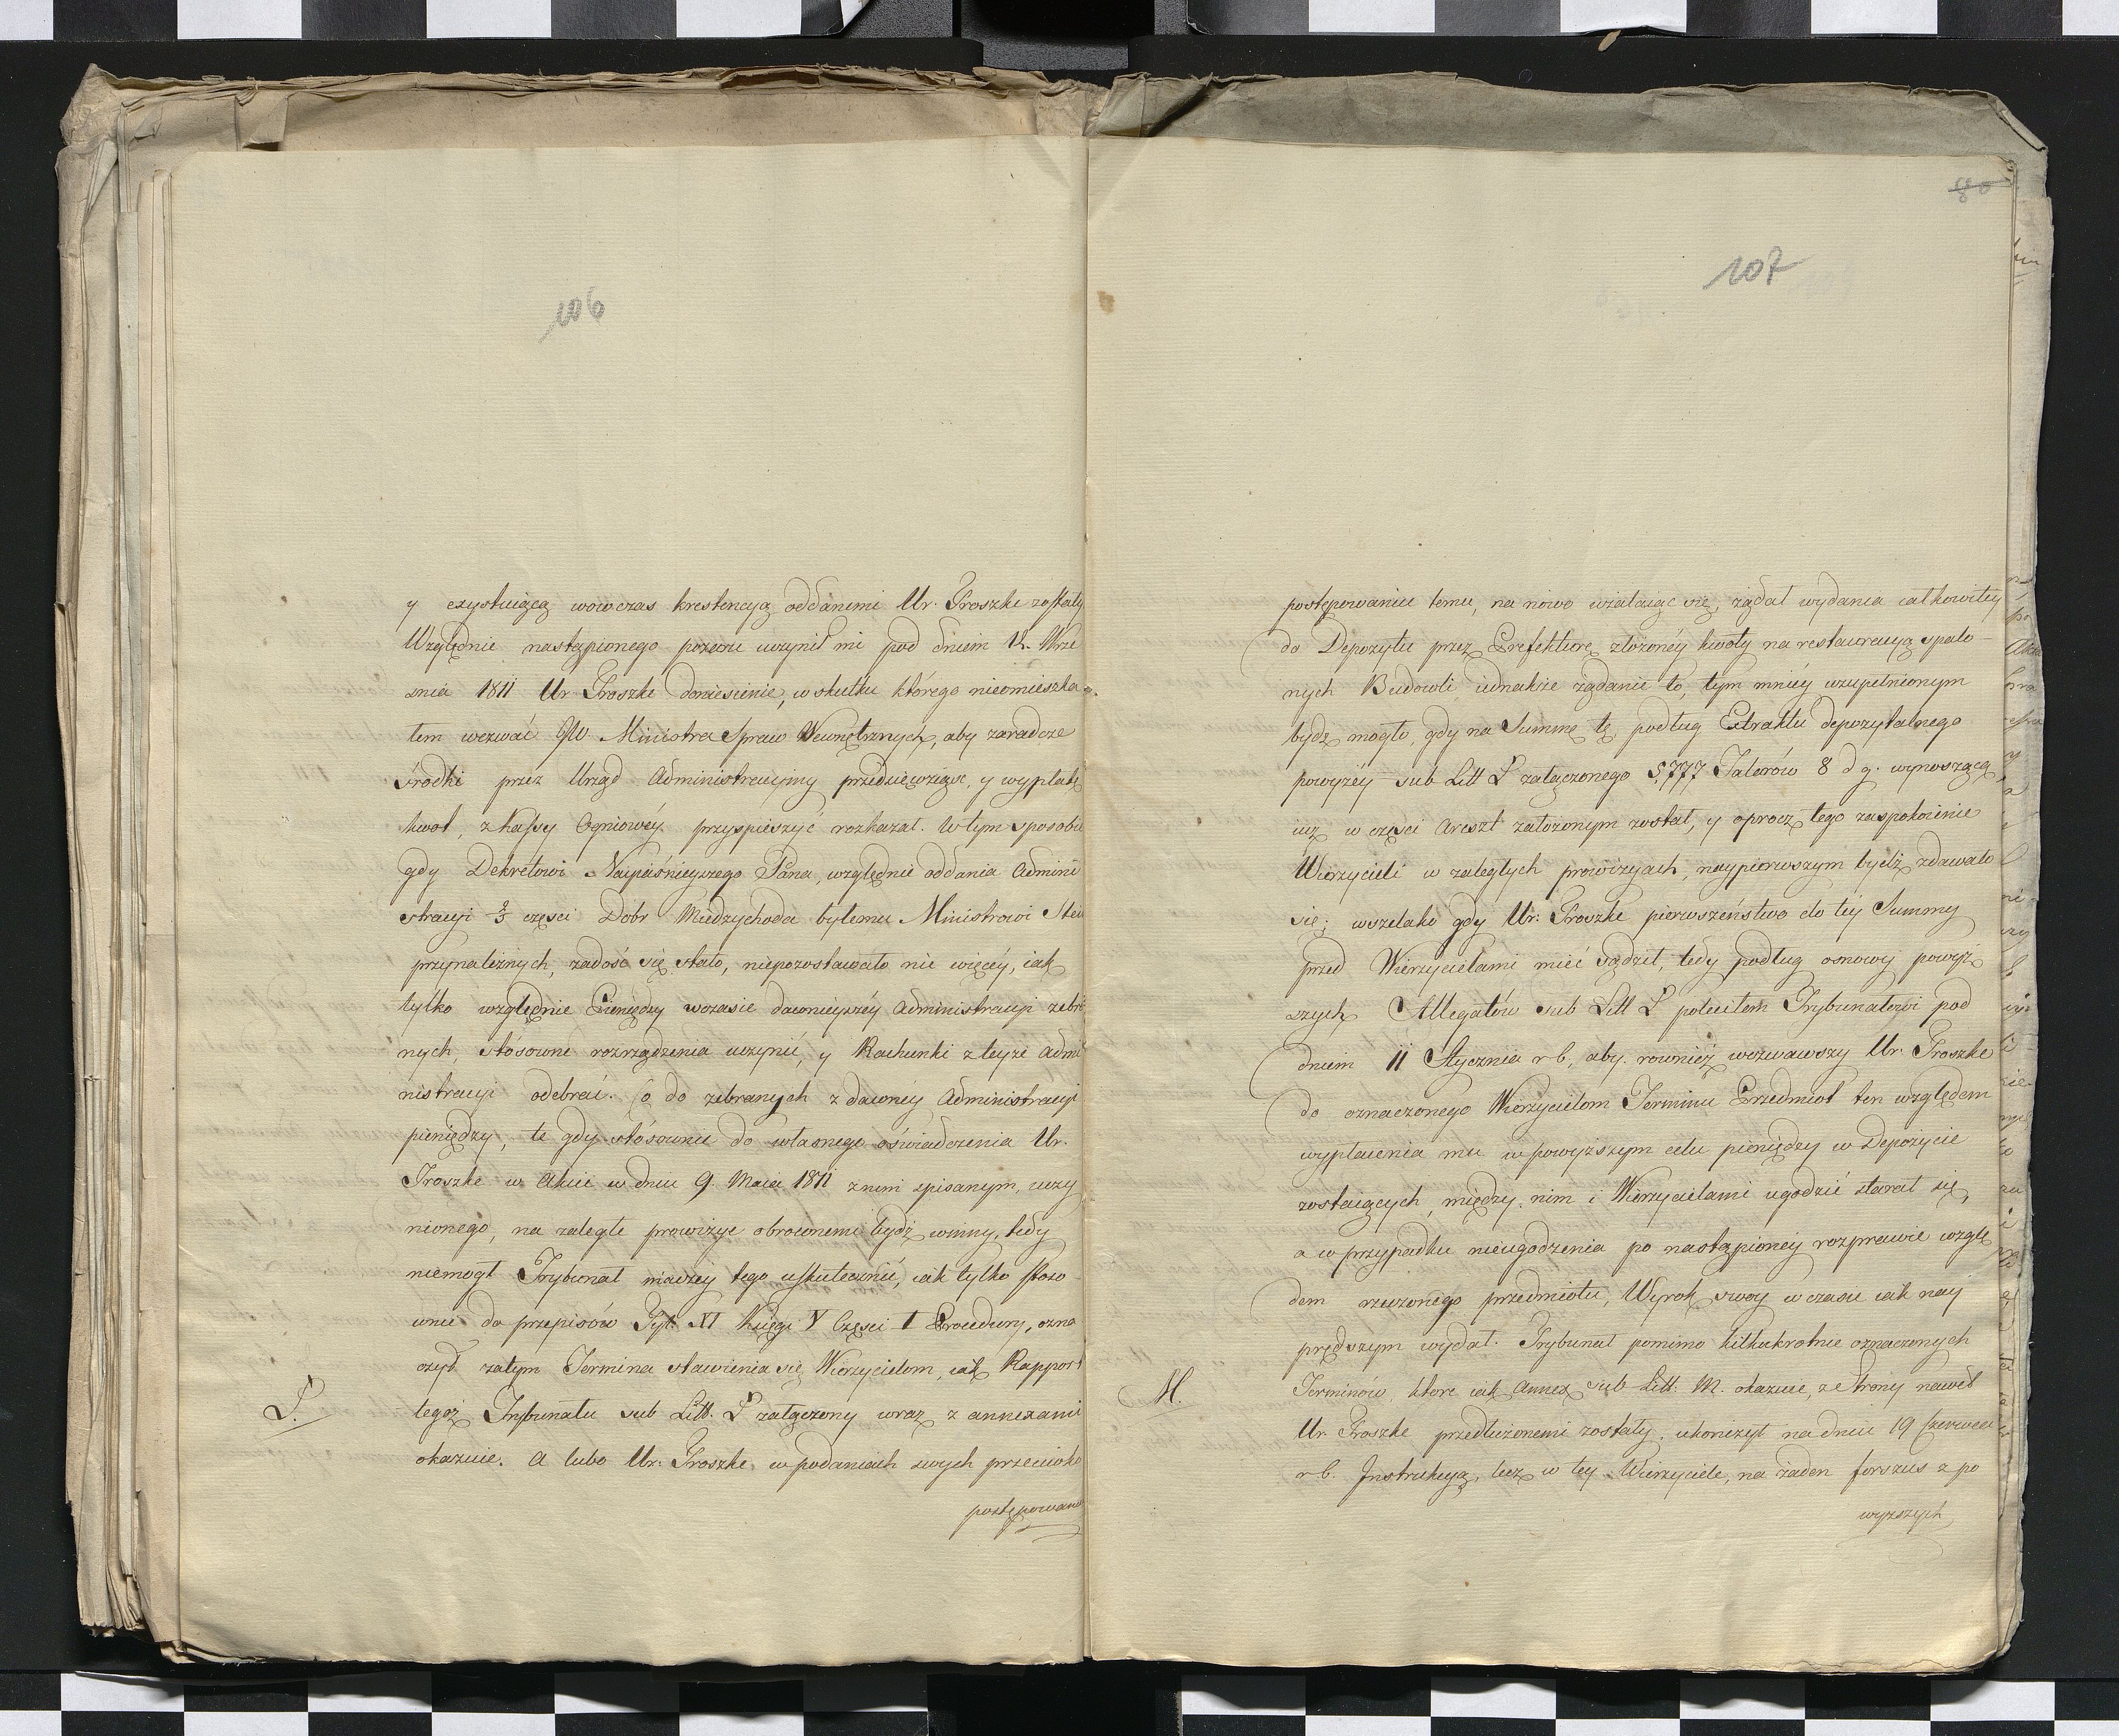 106
y exystuiącą wowczas krestencyą oddanemi Ur. Troszke zostały
Względnie nastąpionego pożaru uczynił mi pod dniem 12. Wrze
snia 1811 Ur Troszke doniesienie, w skutku którego nieomieszka
łem wezwać JW. Ministra Spraw Wewnętrznych, aby zaradcze
środki przez Urząd Administracyiny przedsięwziąć, y wypłatę
kwot, z kassy Ogniowéy przyspieszyć rozkazał. W tym sposobie
gdy Dekretowi Nayiaśnieyszego Pana, względnie oddania Admini
stracyi 2/3 częsci Dobr Miedzychoda byłemu Ministrowi Stein
przynależnych, zadość się stało, niepozostawało nic więcéy, iak
tylko względnie Pieniędzy wczasie dawnieyszéy Administracyi zebra
nych, stósowne rozrządzenia uczynić, y Rachunki z teyże Admi
nistracyi odebrać. Co do zebranych z dawnéy Administracyi
pieniędzy, te gdy stósownie do własnego oświadczenia Ur.
Troszke w Akcie w dniu 9. Maia 1811 z nim spisanym, uczy
nionego, na zaległe prowizye obroconemi bydź winny, tedy
niemogł Trybunał inaczéy tego uskutecznić, iak tylko stoso
wnie do przepisów Tyt. XI Księgi V Częsci I Procedury, ozna
czył zatym Termina stawienia się Wierzycielom, iak Rapport
L.
tegoż Trybunału sub Litt. L załączony wraz z annexami
okazuie. A lubo Ur. Troszke w podaniach swych przeciwko
postępowaniu
80
107
postępowaniu temu, na nowo użalaiąc się, żądał wydania całkowitey
do Depozytu przez Prefekturę złożonéy kwoty na restauracyą spalo-
nych Budowli iednakże żądanie to, tym mniéy uzupełnionym
bydź mogło, gdy na Summę tę podług Extraktu depozytalnego
powyżéy sub Litt L załączonego 5,777 Talarów 8 d g. wynoszącą
iuż w częsci Areszt założonym został, y oprocz tego zaspokoienie
Wierzycieli w zaległych prowizyach, naypierwszym bydź zdawało
się; wszelako gdy Ur: Troszke pierwszeństwo do téy Summy
przed Wierzycielami mieć sądził, tedy podług osnowy powyż
szych Allegatów sub Litt L poleciłem Trybunałowi pod
dniem 11 Stycznia r b. aby rownież wezwawszy Ur. Troszke
do oznaczonego Wierzycielom Terminu Przedmiot ten względem
wypłacenia mu w powyższym celu pieniędzy w Depozycie
zostaiących, między nim i Wierzycielami ugodzić starał się,
a w przypadku nieugodzenia po nastąpionéy rozprawie wzglę
dem rzeczonego przedmiotu, Wyrok swoy w czasie iak nay
prędszym wydał. Trybunał pomimo kilkakrotnie oznaczonych
M.
Terminów, które iak Annex sub Litt: M. okazuie, ze Strony nawet
Ur. Troszke przedłużonemi zostały, ukończył na dniu 19 Czerwca
r b. Instrukcyą, lecz w tey Wierzyciele, na żaden forszus z po
wyższych